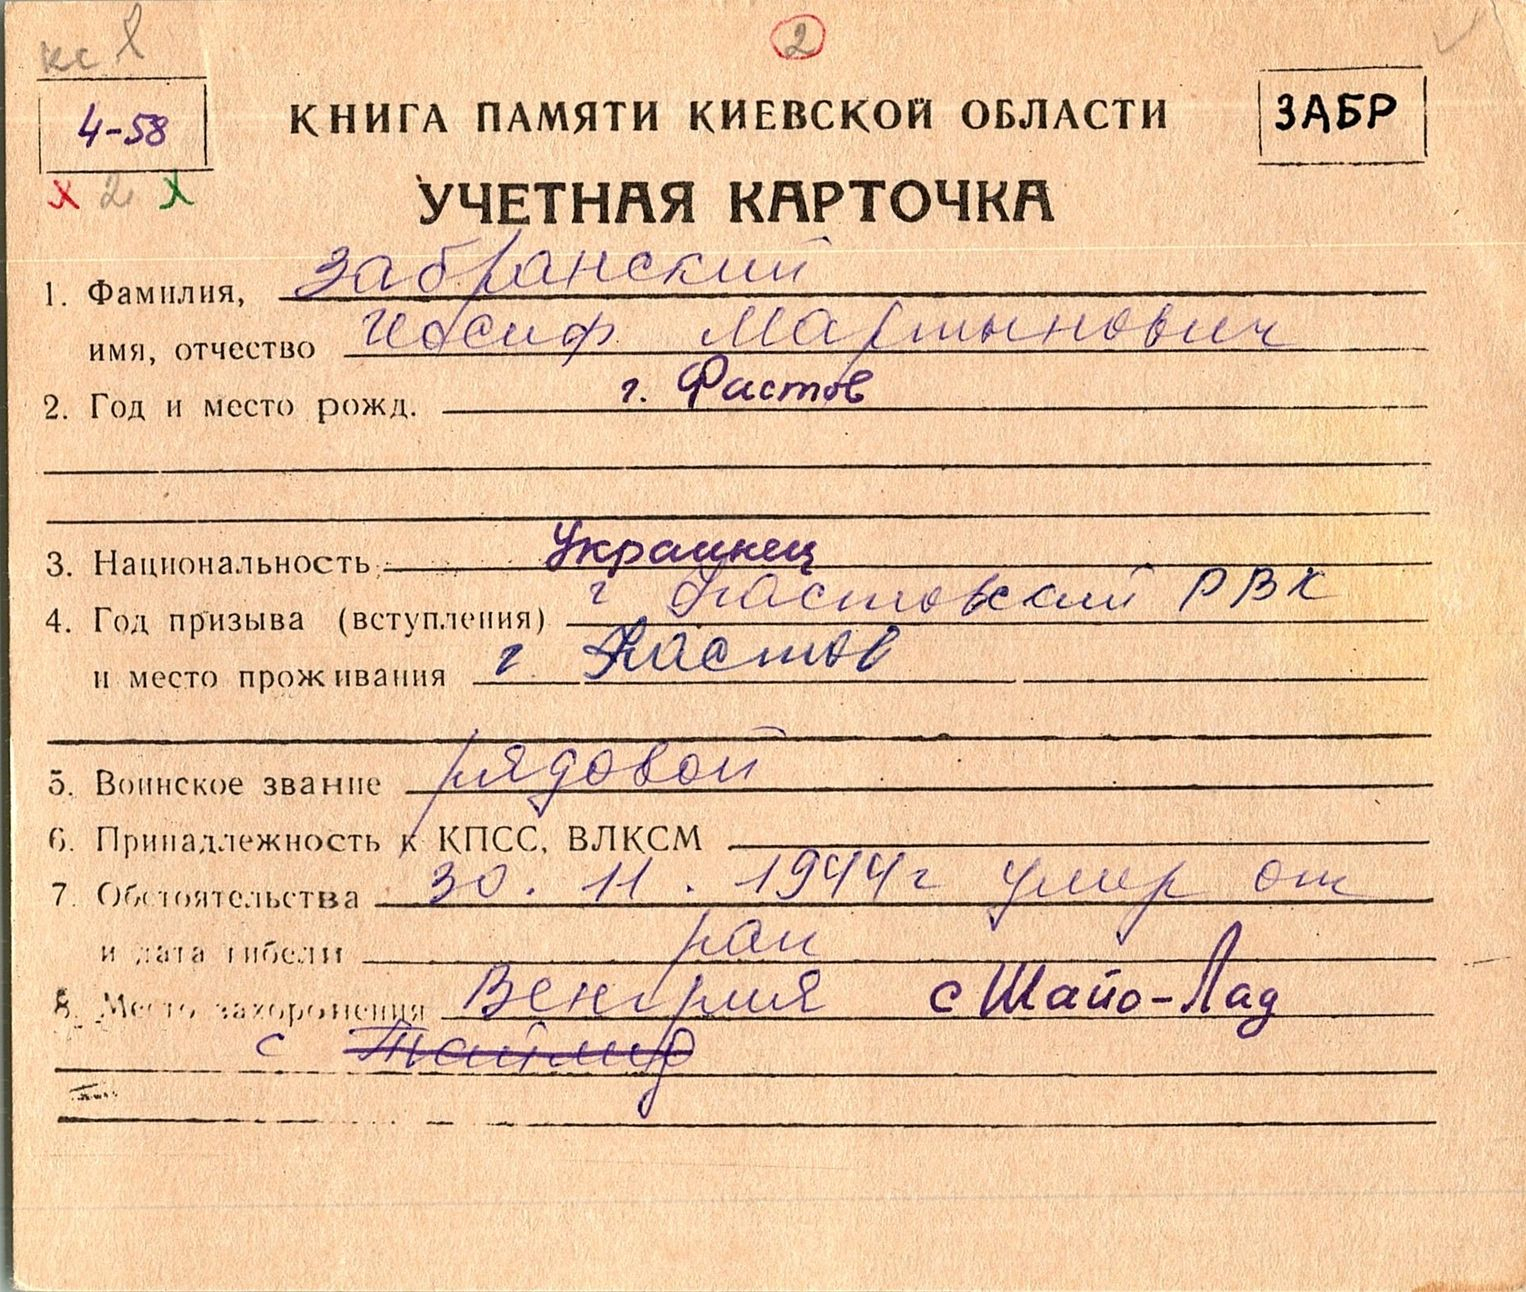 2
4-58
КНИГА ПАМЯТИ КИЕВСКОЙ ОБЛАСТИ
ЗАБР
2
УЧЕТНАЯ КАРТОЧКА
1. Фамилия, Забранский
имя, отчество Иосиф Мартынович
2. Год и место рожд. г. Фастов
3. Национальность Украинец
4. Год призыва (вступления) г Фастовский РВК
и место проживания г Фастов
5. Воинское звание рядовой
6. Принадлежность к КПСС, ВЛКСМ
7. Обстоятельства 30. 11. 1944г умер от
и дата гибели ран
8. Место захоронения Венгрия с Шайо-Лад
с